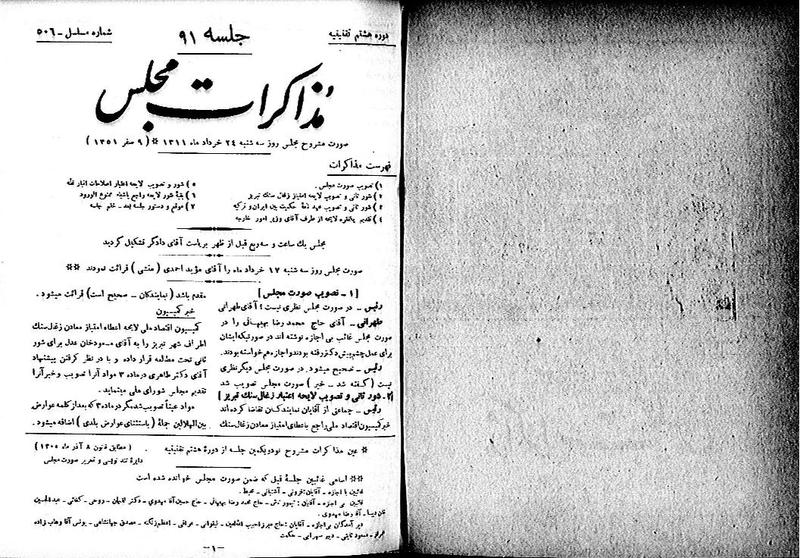 دوره هشتم تقنینیه
جلسه ۹۱
شماره مسلسل - ۵۰۶
مذاکرات مجلس
صورت مشروح مجلس روز سه شنبه ۲۴ خرداد ماه ۱۳۱۱ * ( ۹ صفر ۱۳۵۱ )
فهرست مذاکرات
۱) تصویب صورت مجلس .
۲) شور ثانی و تصویب لایحه امتیاز زغال سنگ تبریز
۳) شور ثانی و تصویب عهد نامهٔ حکمیت بین ایران و ترکیه
۴) تقدیم یکفقره لایحه از طرف آقای وزیر امور خارجه
۵) شور و تصویب لایحه اعتبار اصلاحات انبار غله
۶) بقیهٔ شور لایحه راجع باشیاء ممنوع الورود
۷) موقع و دستور جلسه بعد - ختم جلسه
مجلس یك ساعت و سه ربع قبل از ظهر بریاست آقای دادگر تشکیل گردید
صورت مجلس روز سه شنبه ۱۷ خرداد ماه را آقای مؤید احمدی ( منشی ) قرائت نمودند **
[ ۱ - تصویب صورت مجلس ]
رئیس - در صورت مجلس نظری نیست ؟ آقای طهرانی
طهرانی - آقای حاج محمد رضا بهبهانی را در
صورت مجلس غائب بی اجازه نوشته اند در صورتیکه ایشان
برای عمل چشم پیش دکتر رفته بودند و اجازه هم خواسته بودند.
رئیس - تصحیح میشود. در صورت مجلس دیگر نظری
نیست ( گفته شد - خیر ) صورت مجلس تصویب شد
[ ۲ - دور ثانی و تصویب لایحه اعتبار زغال سنگ تبریز ]
رئیس - جماعتی از آقایان نمایندگان تقاضا کرده اند
خبر کمیسیون اقتصاد ملی راجع باعطای امتیاز معادن زغال سنگ
مقدم باشد ( نمایندگان - صحیح است ) قرائت میشود .
خبر کمیسیون
کمیسیون اقتصاد ملی لایحه اعطاء امتیاز معادن زغال سنگ
اطراف شهر تبریز را به آقای مسعود خان عدل برای شور
ثانی تحت مطالعه قرار داده و با در نظر گرفتن پیشنهاد
آقای دکتر طاهری در ماده ۳ مواد آنرا تصویب و خبر آنرا
تقدیم مجلس شورای ملی مینماید .
مواد عیناً تصویب شد مگر در ماده ۳ که بعد از کلمه عوارض
بین الهلالین جملهٔ (باستثنای عوارض بلدی ) اضافه میشود .
* عین مذاکرات مشروح نود و یکمین جلسه از دورهٔ هشتم تقنینیه
( مطابق قانون ۸ آذر ماه ۱۳۰۵ )
دایرهٔ تند نویسی و تحریر صورت مجلس
** اسامی غائبین جلسهٔ قبل که ضمن صورت مجلس خوانده شده است
غائبین با اجازه - آقایان: قزونی - آشتیانی - محیط .
غائبین بی اجازه - آقایان : تیمور تاش - حاج محمد رضا بهبهانی - حاج حسین آقا مهدوی - دکتر لقمان - روحی - کفائی - عبدالحسین
خان دیبا - آقا رضا مهدوی .
دیر آمدگان بی اجازه - آقایان : حاج میرزا حبیب الله امین - لیقوانی - عراقی - اعظم زنگنه - مصدق جهانشاهی - یونس آقا وهاب زاده
- مسعود ثابتی - دبیر سهرابی - حکمت
-۱-